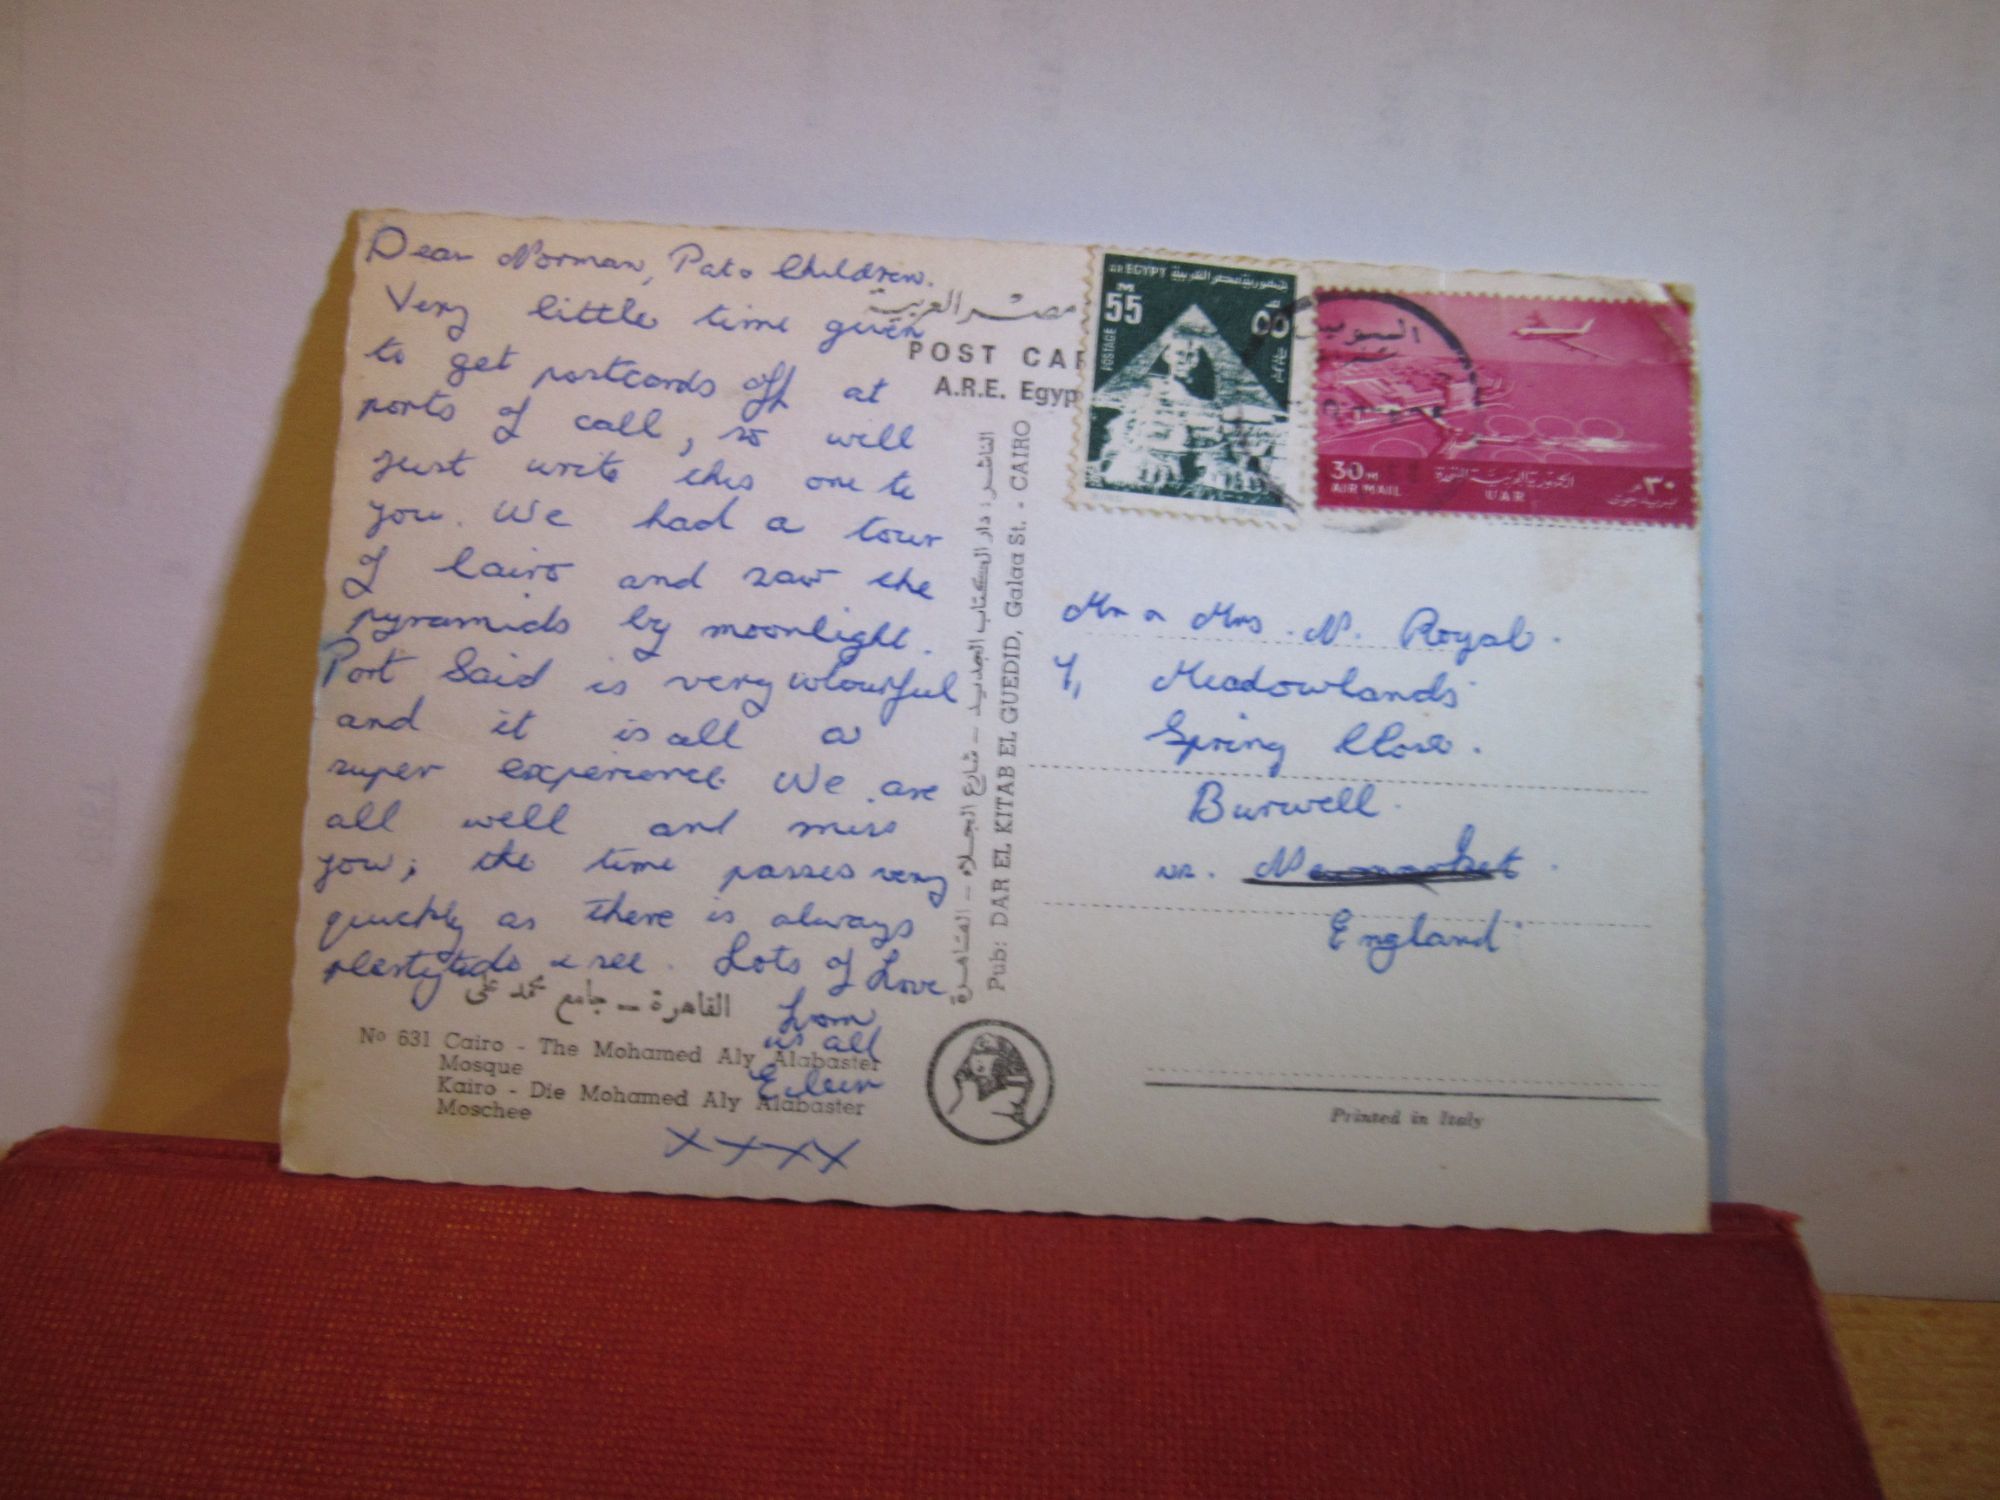 Dear Norman, Pat & Children.
Very little time given
to get postcards off at
ports of call, so will
just write this one to
you. We had a tour
of Cairo and saw the
pyramids by moonlight.
Port Said is very colourful
and it is all a
super experience. We are
all well and miss
you; the time passes very
quickly as there is always
plenty to do & see. Lots of Love
from
us all
Eileen
XXXX
مصر العربية
POST CAR
A.R.E. Egyp
الناشر: دار الكتاب الجديد - شارع الجلاء - القاهرة
Pub: DAR EL KITAB EL GUEDID, Galaa St. - CAIRO
القاهرة - جامع محمد على
No 631 Cairo - The Mohamed Aly Alabaster
Mosque
Kairo - Die Mohamed Aly Alabaster
Moschee
A.R. EGYPT جمهورية مصر العربية
M
55
POSTAGE
م
٥٥
السويس
30 M
AIR MAIL
UAR
٣٠ م
بريد جوى
Mr & Mrs. N. Royal.
Meadowlands
Spring Close.
Burwell.
nr. Newmarket.
England
Printed in Italy